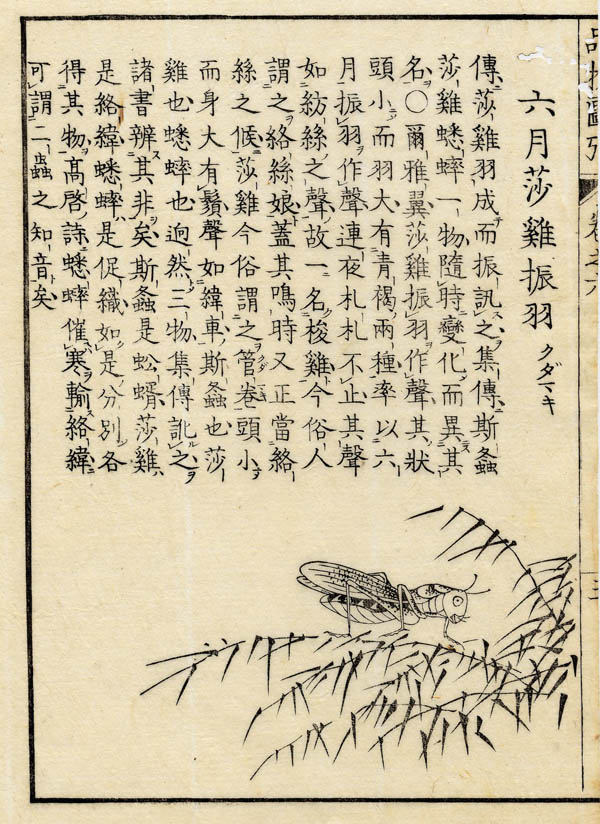 六月莎雞振羽 クダマキ
傳莎雞羽成而振訊之集傳斯螽
莎雞蟋蟀一物隨時變化而異其
名〇爾雅翼莎雞振羽作聲其狀
頭小而羽大有青褐兩種率以六
月振羽作聲連夜札札不止其聲
如紡絲之聲故一名梭雞今俗人
謂之絡絲娘蓋其鳴時又正當絡
絲之候莎雞今俗謂之管卷頭小
而身大有鬚聲如緯車斯螽也莎
雞也蟋蟀也逈然三物集傳訛之
諸書辨其非矣斯螽是蚣蝑莎雞
是絡緯蟋蟀是促織如是分別各
得其物高啓詩蟋蟀催寒輸絡緯
可謂二蟲之知音矣